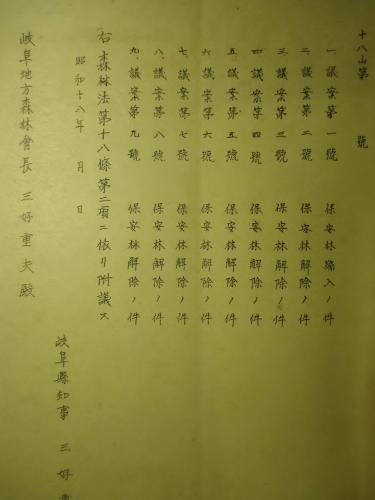 十八山第　　　號
一、議案第一號　保安林編入ノ件
二、議案第二號　保安林解除ノ件
三、議案第三號　保安林解除ノ件
四、議案第四號　保安林解除ノ件
五、議案第五號　保安林解除ノ件
六、議案第六號　保安林解除ノ件
七、議案第七號　保安林解除ノ件
八、議案第八號　保安林解除ノ件
九、議案第九號　保安林解除ノ件
右森林法第十八條第二項ニ依リ附議ス
昭和十八年　月　日
岐阜縣知事　三好重
岐阜地方森林會長　三好重夫殿